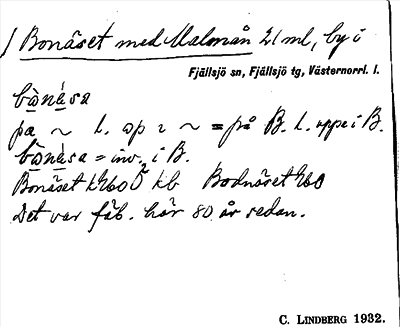 Bonäset med Malmån 21 ml, by i
Fjällsjö sn, Fjällsjö tg, Västernorrl. l.
bònása
pa ~ l. op i ~ = på B. l. uppe i B.
bònása = inv. i B.
Bonäset kb Bodnäset
Det var fäb. här 80 år sedan.
C. LINDBERG 1932.